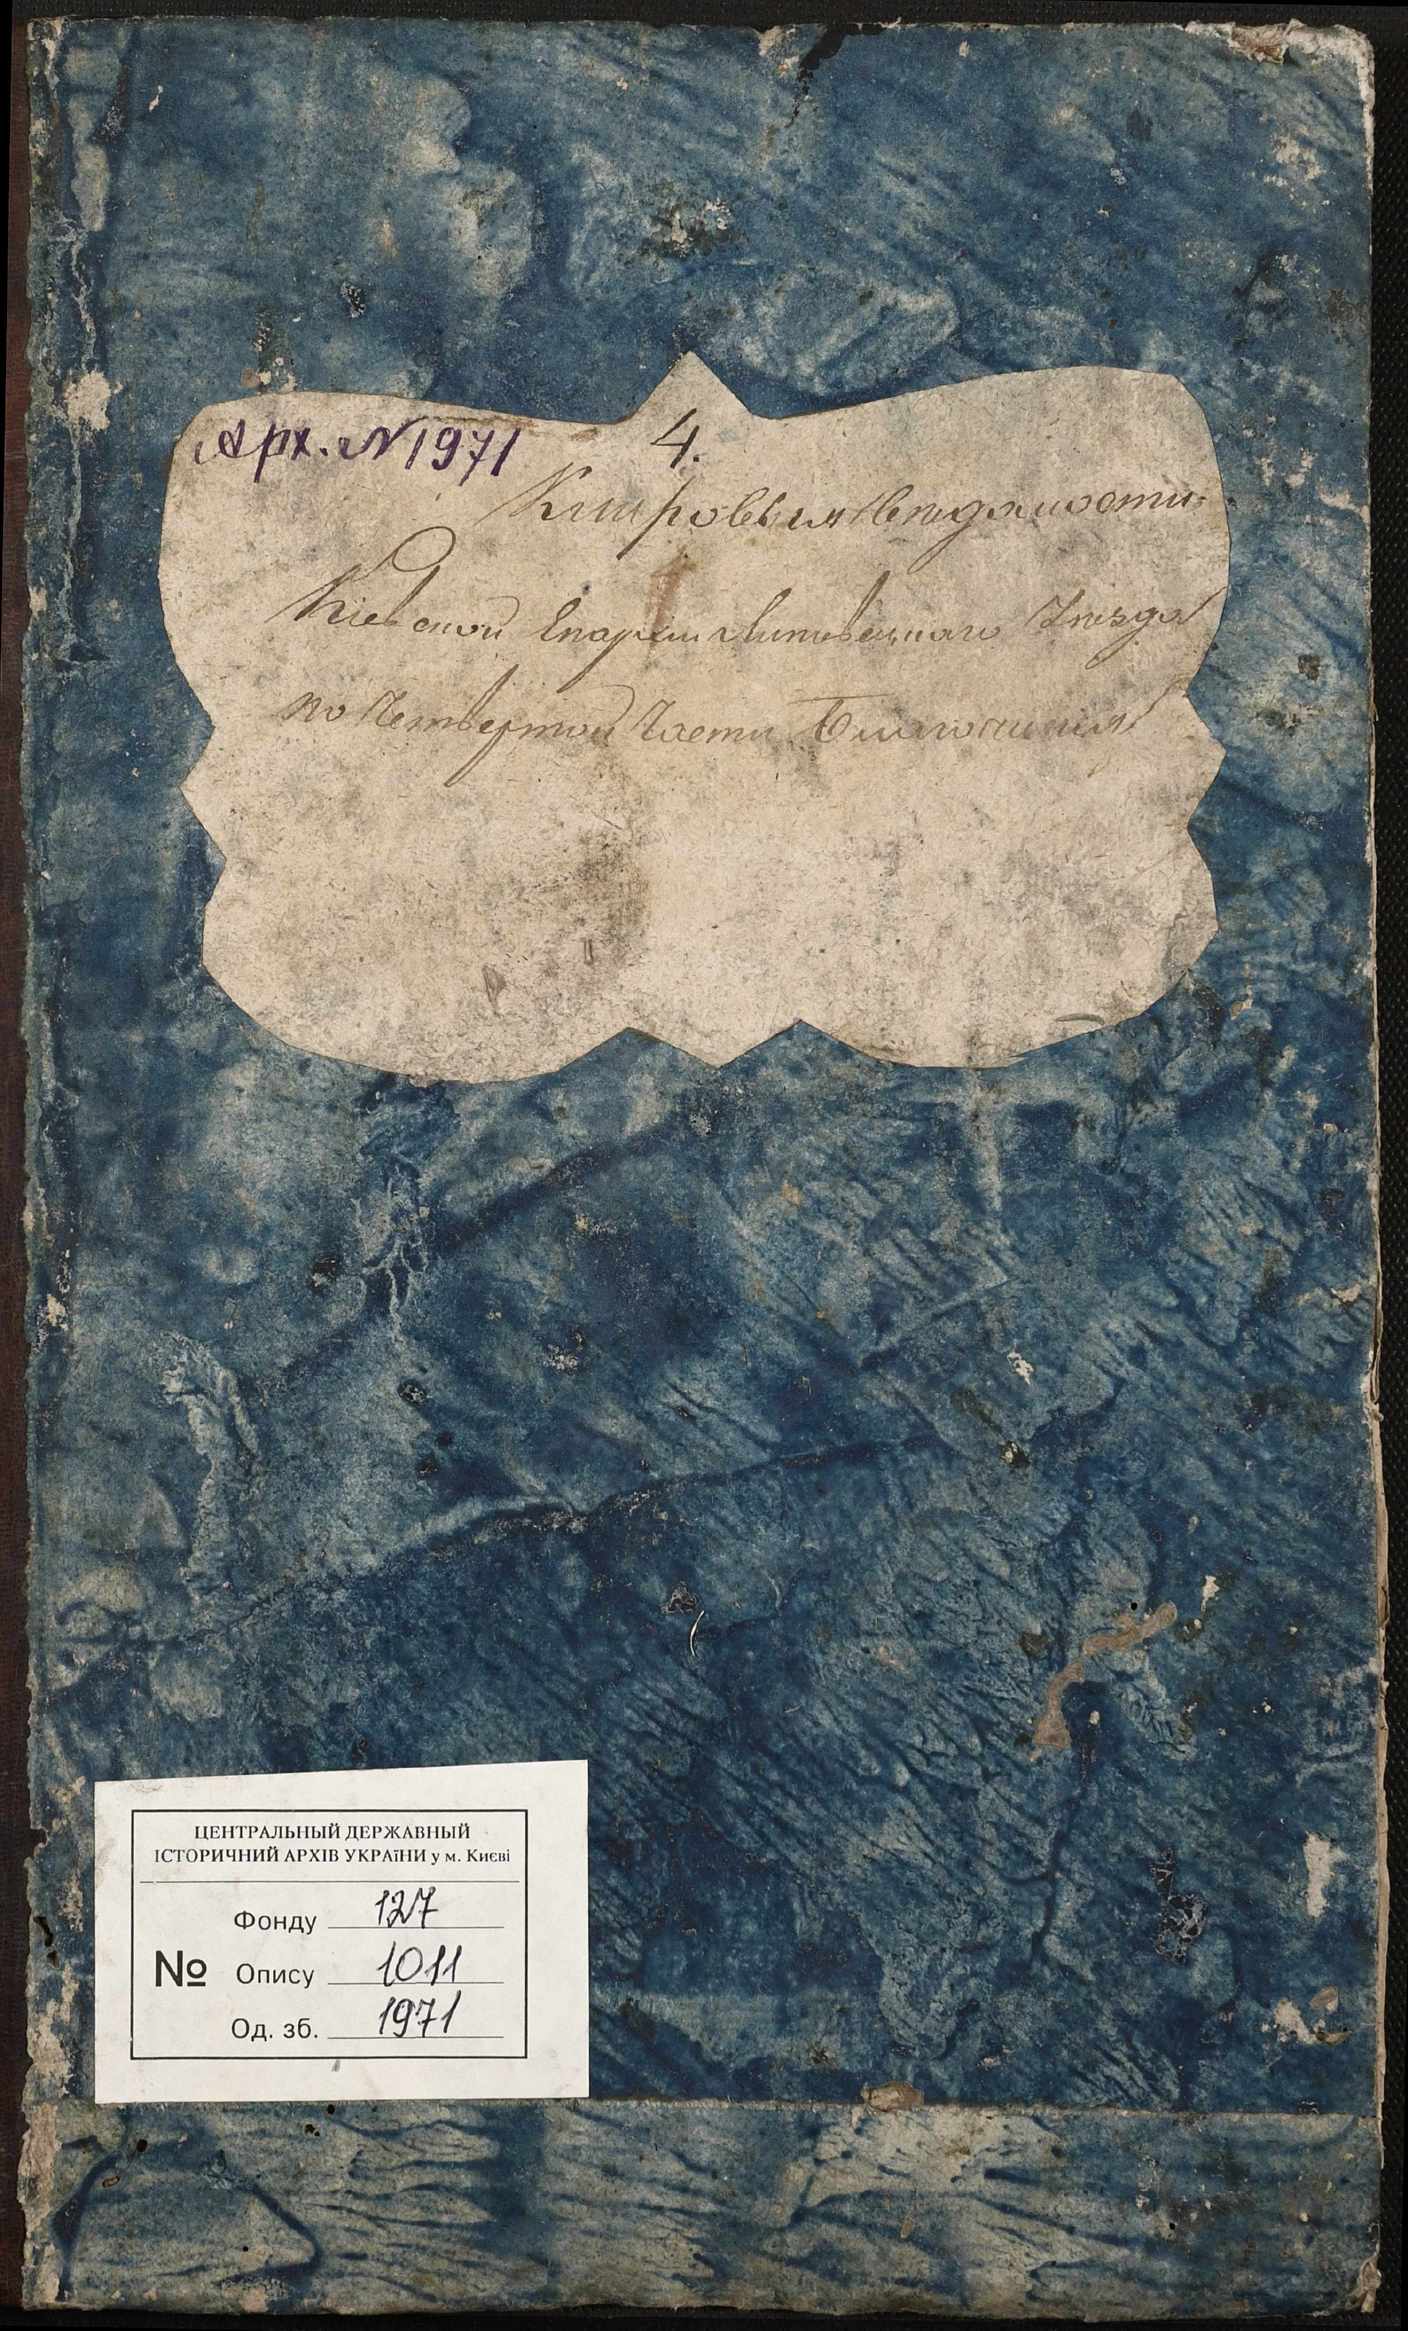 Арх. № 1971
4.
Клировыя ведомости
Кіевской Епархіи Липовецкаго Уезда
по Четвертой Части Благочинія
ЦЕНТРАЛЬНЫЙ ДЕРЖАВНЫЙ
ІСТОРИЧНИЙ АРХІВ УКРАїНИ у м. Києві
Фонду 127
№ Опису 1011
Од. зб. 1971